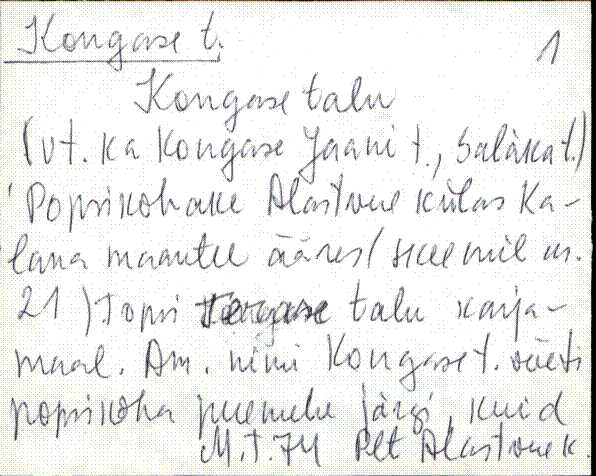 Kongase t.
1
Kongase talu
(vt. ka Kongase Jaani t., Salaka t.)
Popsikohake Alastvere külas Ka-
lana maantee ääres (skeemil nr.
21) Topsi talu karja-
maal. Am. nimi Kongase t. võeti
popsikoha peemehe järgi, kuid
M.T.74 Plt Alastvere k.